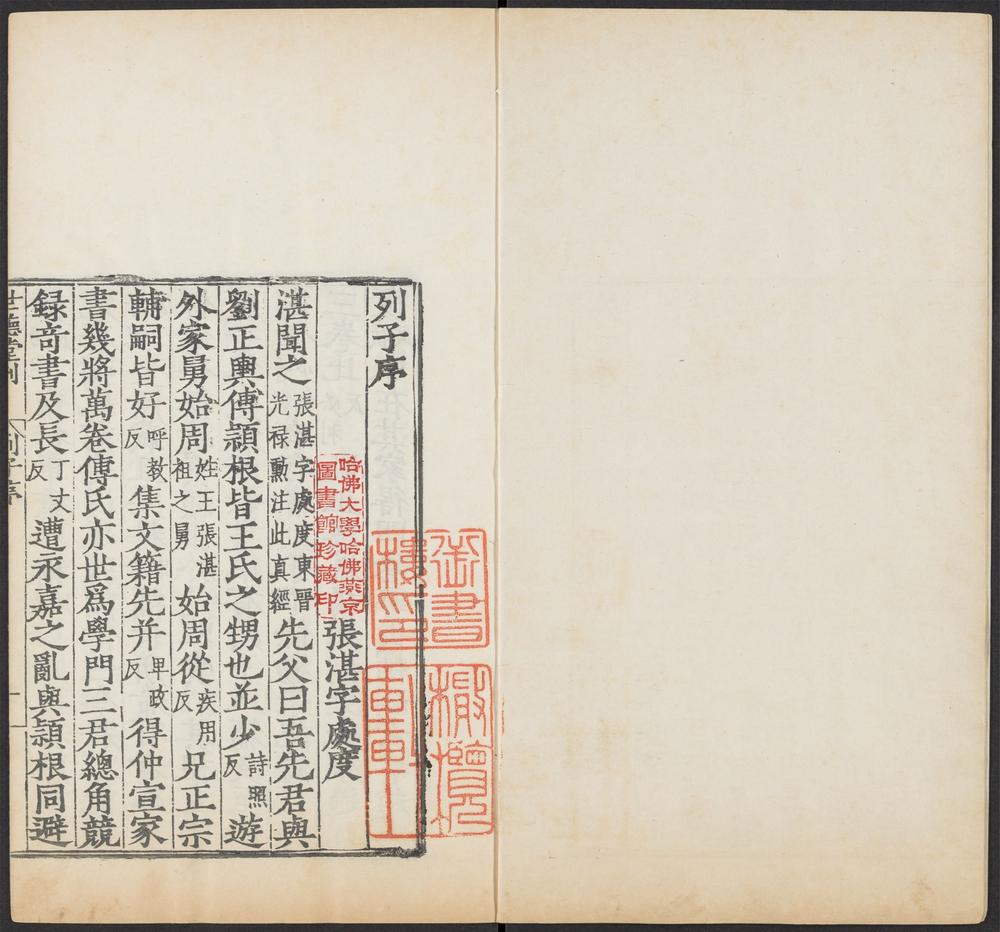 列子序
張湛字處度
湛聞之張湛字處度東晉光祿勲注此真經先父曰吾先君與
劉正輿傅頴根皆王氏之甥也並少詩照反遊
外家舅始周姓王張湛祖之舅始周從疾用反兄正宗
輔嗣皆好呼教反集文籍先并卑政反得仲宣家
書幾將萬卷傅氏亦世爲學門三君總角競
録竒書及長丁丈反遭永嘉之亂與頴根同避
世德堂刊
列子序
一
哈佛大學哈佛燕京
圖書館珍藏印
御書
樓印